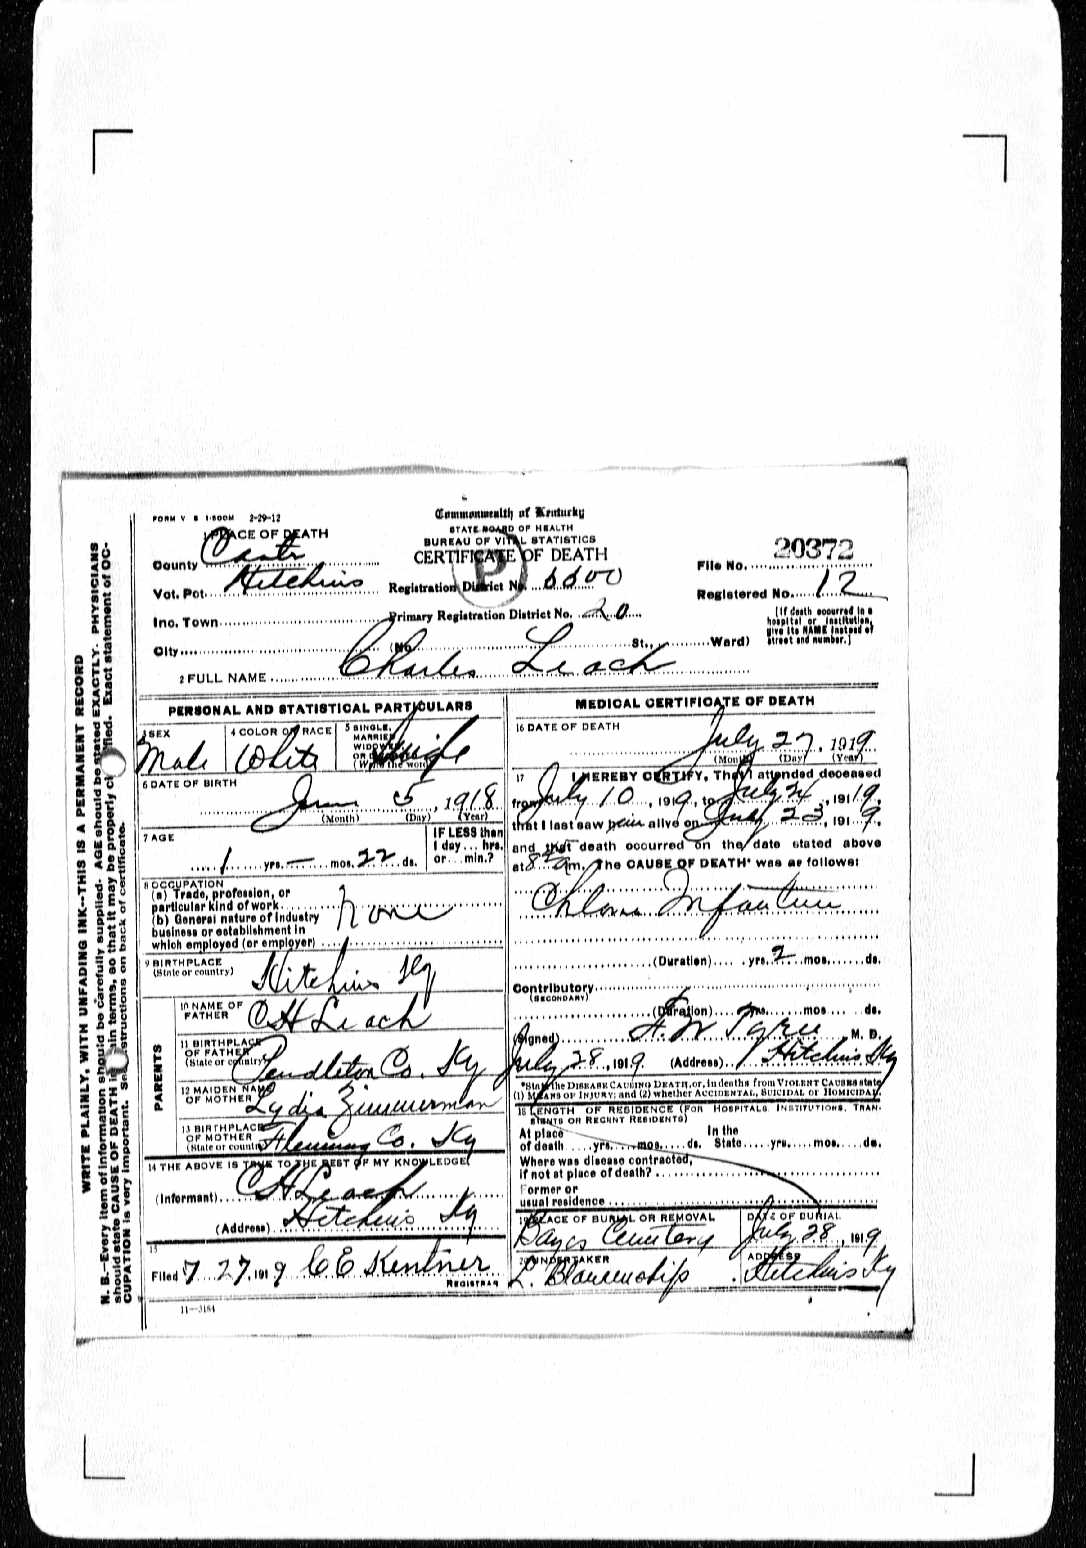 FORM V S 1-500M 2-29-12
Commonwealth of Kentucky
STATE BOARD OF HEALTH
BUREAU OF VITAL STATISTICS
CERTIFICATE OF DEATH
1 PLACE OF DEATH
County Carter
Vot. Pct. Hitchins
Inc. Town
City
P
Registration District No. 6600
Primary Registration District No. 20
(No. St., Ward)
20372
File No.
Registered No. 12
[If death occurred in a
hospital or institution,
give its NAME instead of
street and number.]
2 FULL NAME Charles Leach
PERSONAL AND STATISTICAL PARTICULARS
3 SEX
Male
4 COLOR OR RACE
White
5 SINGLE,
MARRIED,
WIDOWED,
OR
(Write the word)
Single
6 DATE OF BIRTH
June 5, 1918
(Month) (Day) (Year)
7 AGE
1 yrs. — mos. 22 ds.
IF LESS than
1 day... hrs.
or... min.?
8 OCCUPATION
(a) Trade, profession, or
particular kind of work
(b) General nature of industry
business or establishment in
which employed (or employer)
None
9 BIRTHPLACE
(State or country)
Hitchins Ky
PARENTS
10 NAME OF
FATHER
C H Leach
11 BIRTHPLACE
OF FATHER
(State or country)
Pendleton Co. Ky
12 MAIDEN NAME
OF MOTHER
Lydia Zimmerman
13 BIRTHPLACE
OF MOTHER
(State or country)
Fleming Co. Ky
14 THE ABOVE IS TRUE TO THE BEST OF MY KNOWLEDGE
(Informant) C H Leach
(Address) Hitchins Ky
15
Filed 7 27, 1919 C E Kentner
REGISTRAR
11—3184
MEDICAL CERTIFICATE OF DEATH
16 DATE OF DEATH
July 27, 1919
(Month) (Day) (Year)
17 I HEREBY CERTIFY, That I attended deceased
from July 10, 1919, to July 24, 1919,
that I last saw him alive on July 23, 1919,
and that death occurred on the date stated above
at 8 am. The CAUSE OF DEATH* was as follows:
Infantum
(Duration) yrs. 2 mos. ds.
Contributory
(SECONDARY)
(Duration) yrs. mos. ds.
(Signed) M. D.
July 28, 1919 (Address) Hitchins Ky
*State the DISEASE CAUSING DEATH, or, in deaths from VIOLENT CAUSES state
(1) MEANS OF INJURY; and (2) whether ACCIDENTAL, SUICIDAL or HOMICIDAL.
18 LENGTH OF RESIDENCE (FOR HOSPITALS, INSTITUTIONS, TRAN-
SIENTS OR RECENT RESIDENTS)
At place In the
of death yrs. mos. ds. State yrs. mos. ds.
Where was disease contracted,
if not at place of death?
Former or
usual residence
19 PLACE OF BURIAL OR REMOVAL
Bayes Cemetery
DATE OF BURIAL
July 28, 1919
20 UNDERTAKER
L. Blankenship
ADDRESS
Hitchins Ky
WRITE PLAINLY, WITH UNFADING INK--THIS IS A PERMANENT RECORD
N. B.--Every item of information should be carefully supplied. AGE should be stated EXACTLY. PHYSICIANS
should state CAUSE OF DEATH in plain terms, so that it may be properly classified. Exact statement of OC-
CUPATION is very important. See instructions on back of certificate.